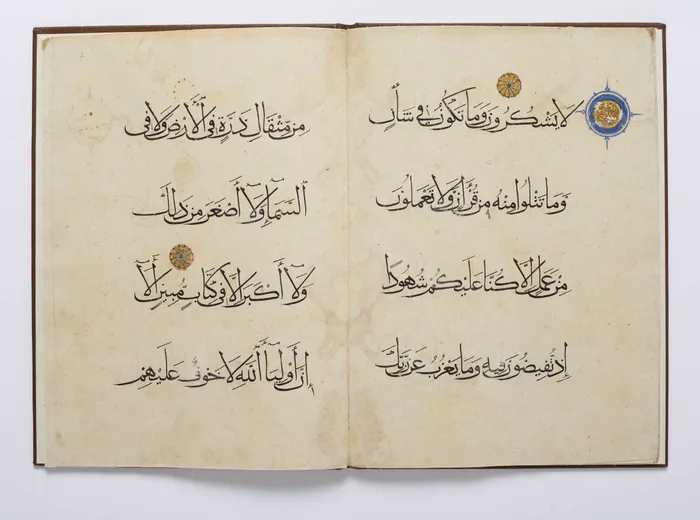 لَا يَشْكُرُونَ وَمَا تَكُونُ فِي شَأْنٍ
وَمَا تَتْلُوا مِنْهُ مِنْ قُرْآنٍ وَلَا تَعْمَلُونَ
مِنْ عَمَلٍ إِلَّا كُنَّا عَلَيْكُمْ شُهُودًا
إِذْ تُفِيضُونَ فِيهِ وَمَا يَعْزُبُ عَنْ رَبِّكَ
مِنْ مِثْقَالِ ذَرَّةٍ فِي الْأَرْضِ وَلَا فِي
السَّمَاءِ وَلَا أَصْغَرَ مِنْ ذَلِكَ
وَلَا أَكْبَرَ إِلَّا فِي كِتَابٍ مُبِينٍ أَلَا
إِنَّ أَوْلِيَاءَ اللَّهِ لَا خَوْفٌ عَلَيْهِمْ